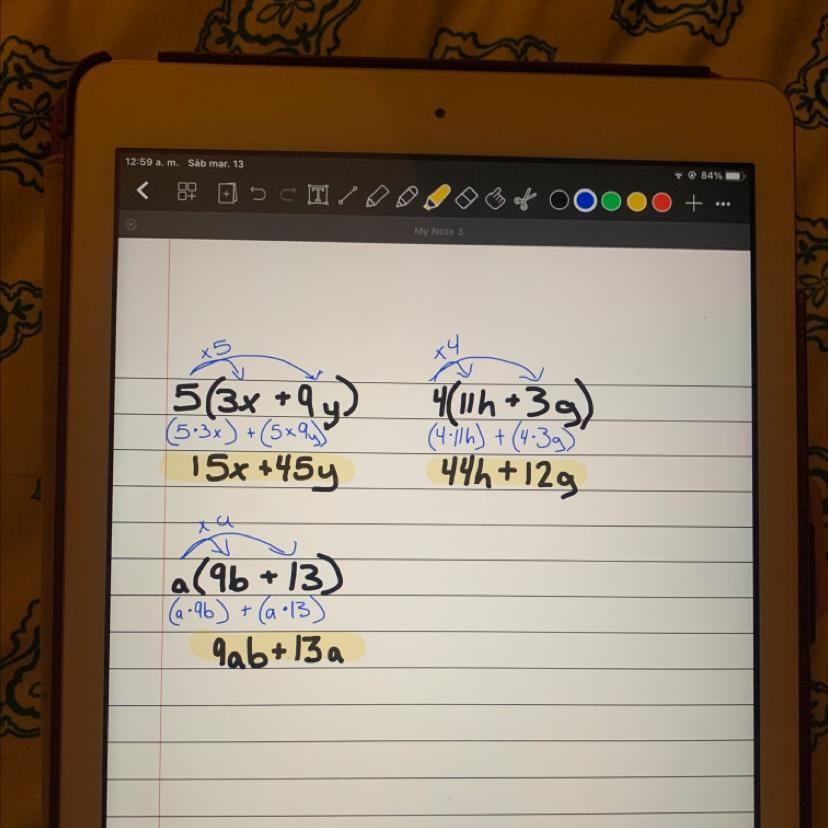 12:59 a. m. Sáb mar. 13
84%
T
My Note 3
x5
5(3x + 9y)
(5·3x) + (5x9y)
15x + 45y
x4
4(11h + 3g)
(4·11h) + (4·3g)
44h + 12g
xa
a(9b + 13)
(a·9b) + (a·13)
9ab + 13a